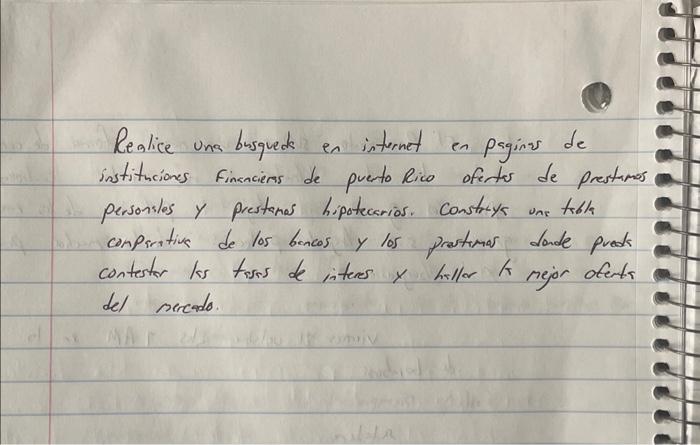 Realice una busqueda en internet en paginas de
instituciones Financieras de puerto Rico ofertas de prestamos
personales y prestamos hipotecarios. Construya una tabla
comparativa de los bancos y los prestamos donde pueda
contestar las tasas de interes y hallar la mejor oferta
del mercado.